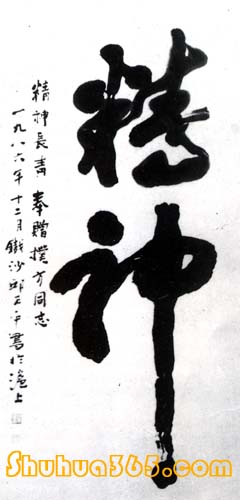 精神
精神長青 奉贈樸方同志
一九八六年十二月鐵沙邱正平書於滬上
Shuhua365.com